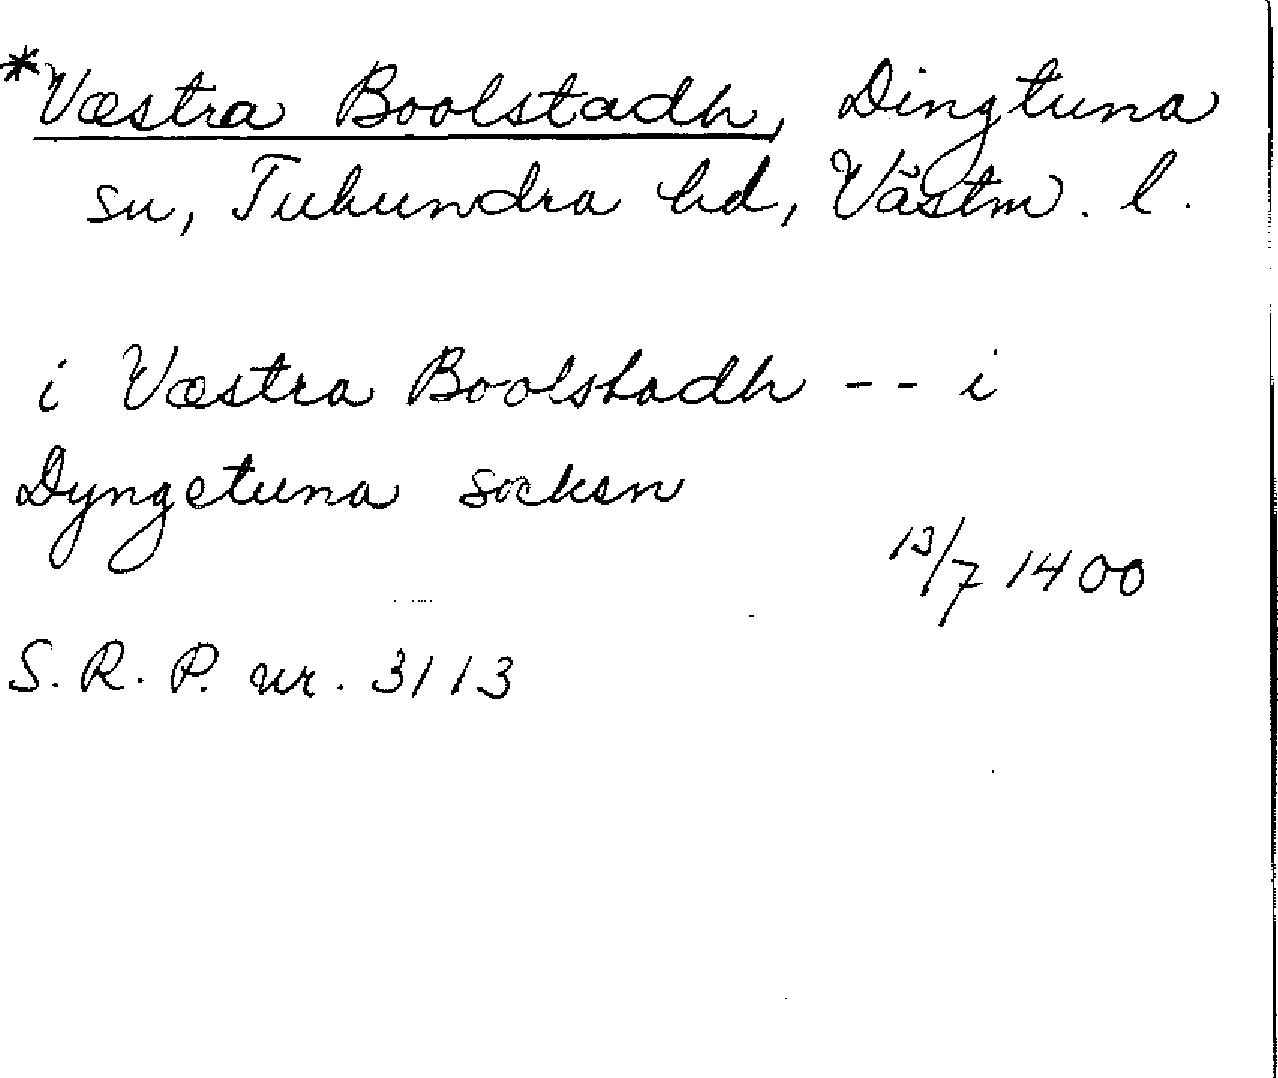 *Væstra Boolstadh, Dingtuna
sn, Tuhundra hd, Västm. l.
i Væstra Boolstadh -- i
Dyngetuna socken
13/7 1400
S. R. P. nr. 3113